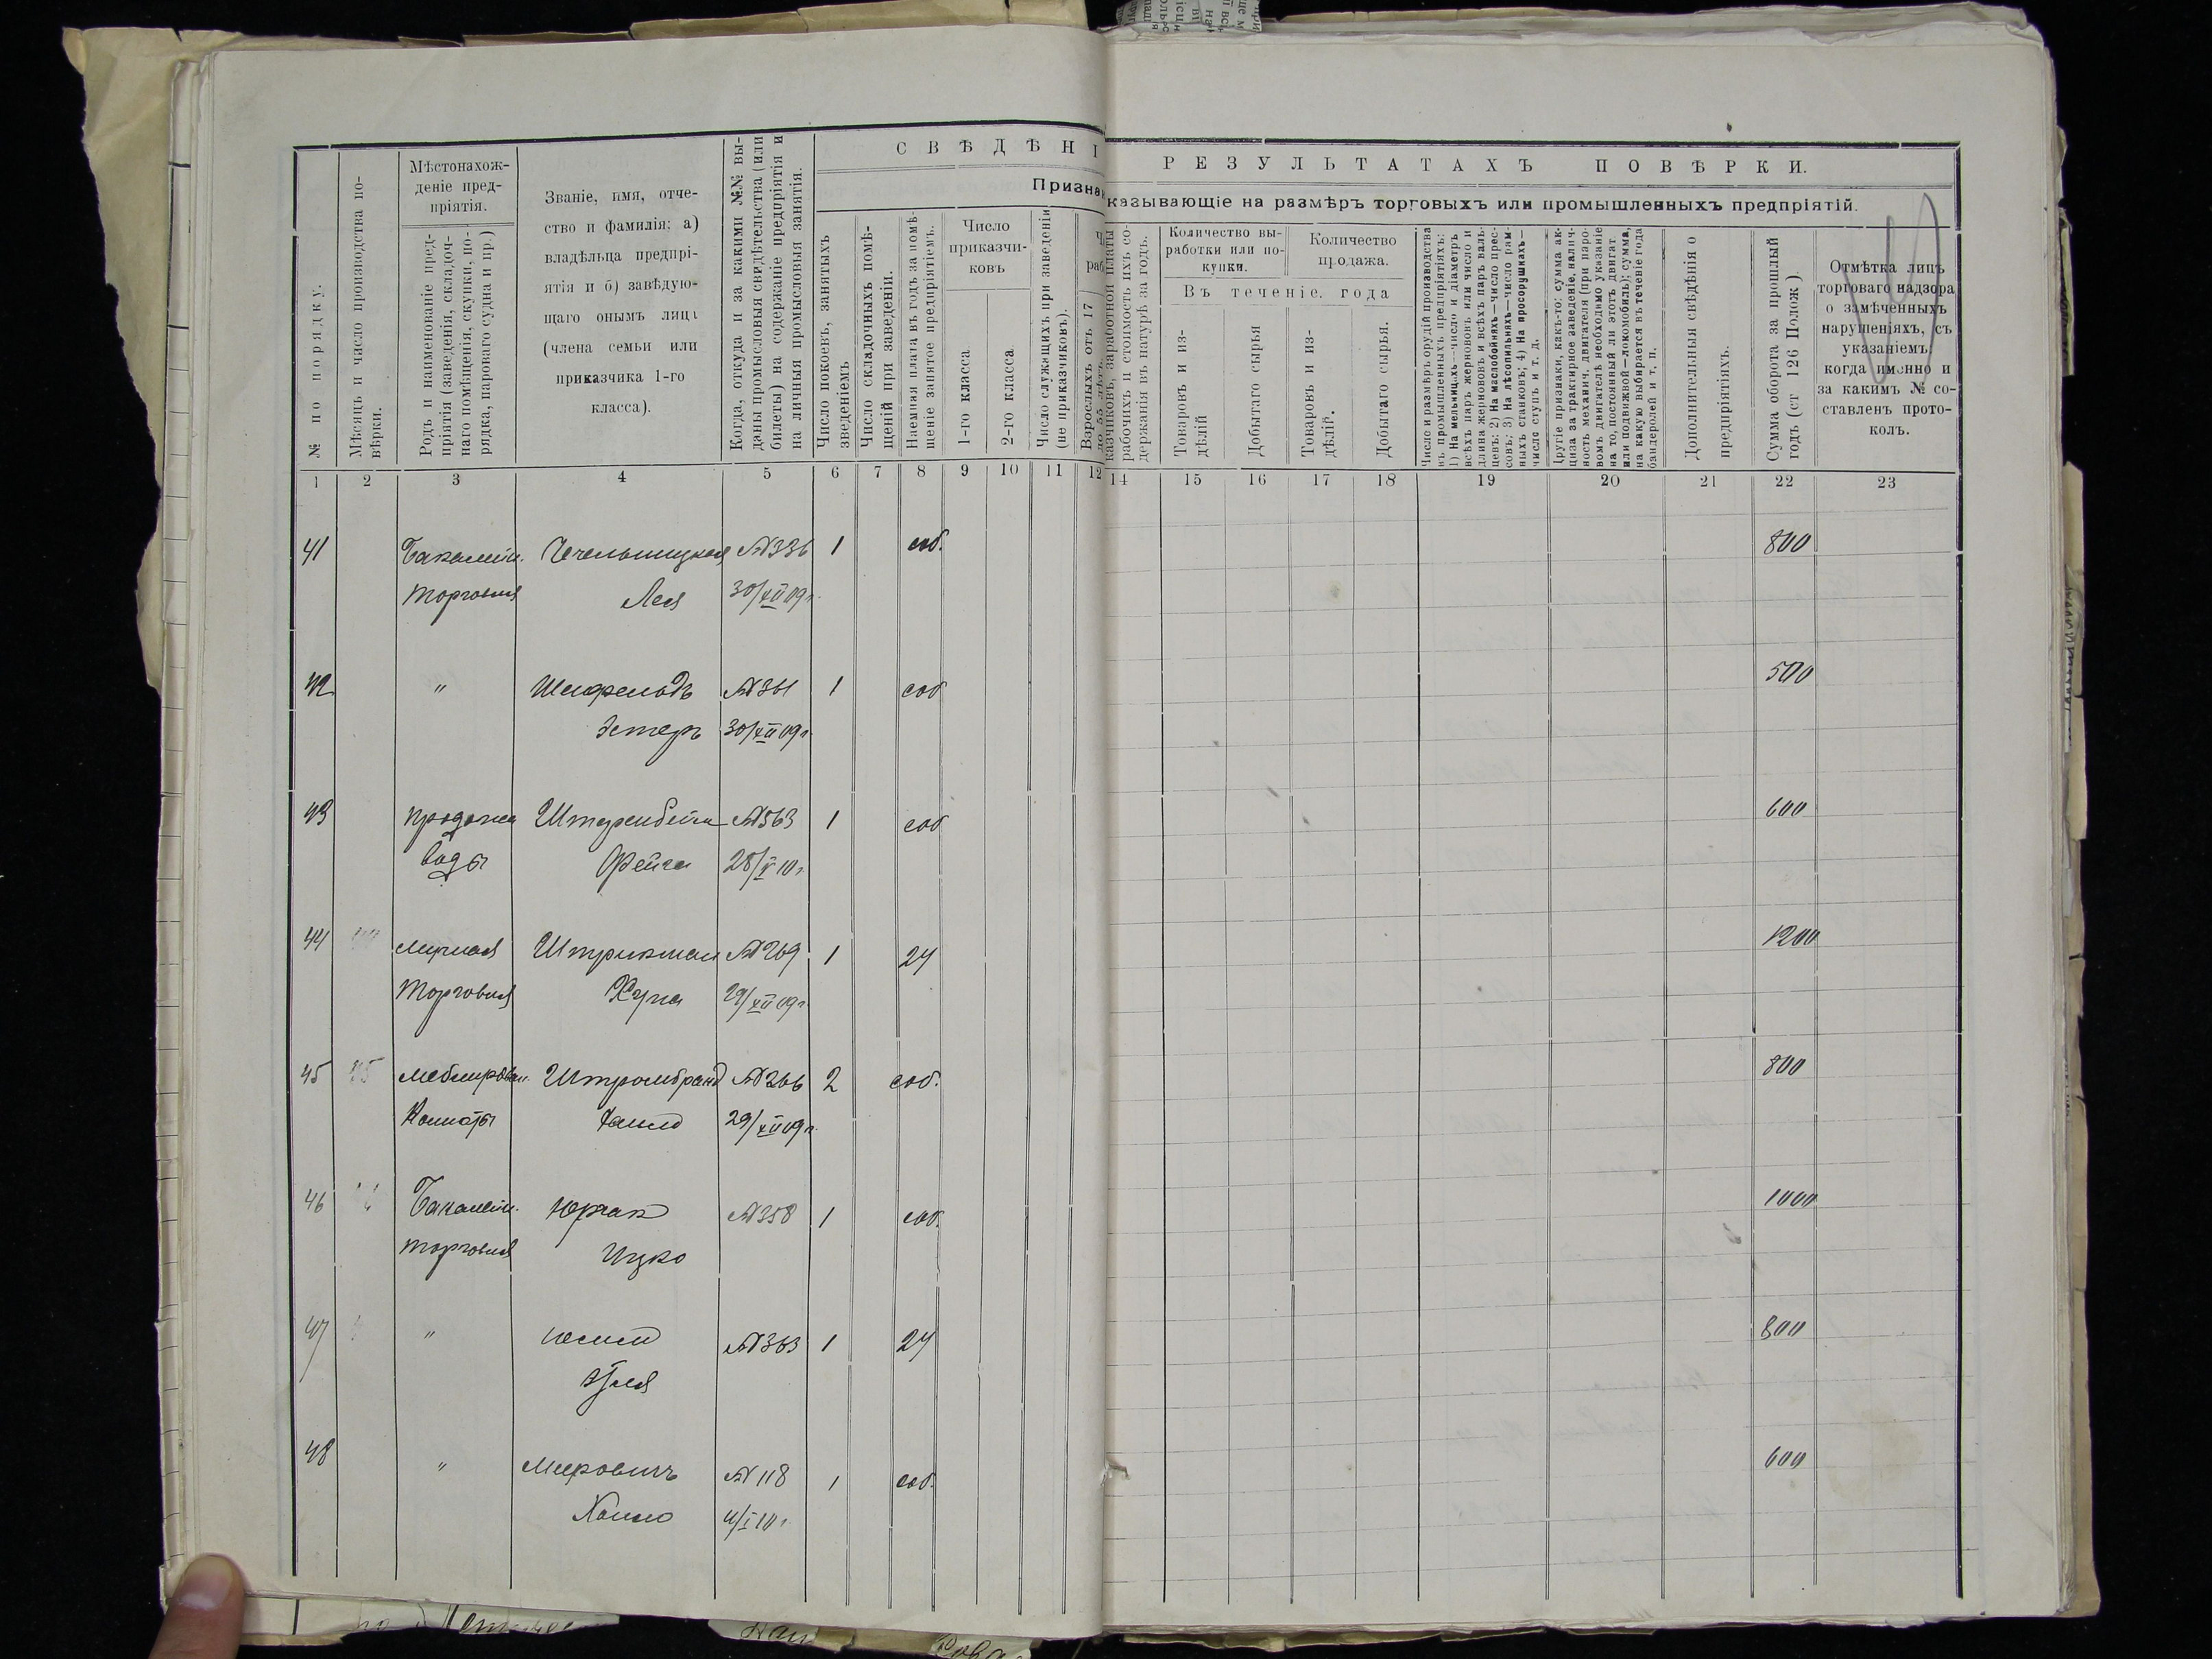 СВѢДѢНІ
РЕЗУЛЬТАТАХЪ ПОВѢРКИ.
Призна
казывающіе на размѣръ торговыхъ или промышленныхъ предпріятій.
№ по порядку.
Мѣсяцъ и число производства по-
вѣрки.
Мѣстонахож-
деніе пред-
пріятія.
Родъ и наименованіе пред-
пріятія (заведенія, складоч-
наго помѣщенія, скупки, по-
рядка, пароваго судна и пр.)
Званіе, имя, отче-
ство и фамилія: а)
владѣльца предпрі-
ятія и б) завѣдую-
щаго онымъ лица
(члена семьи или
приказчика 1-го
класса).
Когда, откуда и за какими №№ вы-
даны промысловыя свидѣтельства (или
билеты) на содержаніе предпріятія и
на личныя промысловыя занятія.
Число покоевъ, занятыхъ
зведеніемъ
Число складочныхъ помѣ-
щеній при заведеніи.
Наемная плата въ годъ за помѣ-
щеніе занятое предпріятіемъ.
Число
приказчи-
ковъ
1-го класса
2-го класса
Число служащихъ при заведеніи
(не приказчиковъ).
Ч
раб
Взрослыхъ отъ 17
до 55 лѣтъ.
казчиковъ, заработной платы
рабочихъ и стоимость ихъ со-
держанія въ натурѣ за годъ.
Количество вы-
работки или по-
купки.
Количество
продажа.
Въ теченіе года
Товаровъ и из-
дѣлій
Добытаго сырья
Товаровъ и из-
дѣлій.
Добытаго сырья.
Число и размѣръ орудій производства
въ промышленныхъ предпріятіяхъ:
1) На мельницахъ—число и діаметръ
всѣхъ паръ жернововъ или число и
длина жернововъ и всѣхъ паръ валь-
цевъ; 2) На маслобойняхъ—число прес-
совъ; 3) На лѣсопильняхъ—число рам-
ныхъ станковъ; 4) На просорушкахъ—
число ступъ и т. д.
Другіе признаки, какъ-то: сумма ак-
циза за трактирное заведеніе, налич-
ность механич. двигателя (при паро-
вомъ двигателѣ необходимо указаніе
на то, постоянный ли этотъ двигат.
или подвижной—локомобиль); сумма,
на какую выбирается въ теченіе года
бандеролей и т. п.
Дополнительныя свѣдѣнія о
предпріятіяхъ.
Сумма оборота за прошлый
годъ (ст 126 Полож)
Отмѣтка лицъ
торговаго надзора
о замѣченныхъ
нарушеніяхъ, съ
указаніемъ
когда именно и
за какимъ № со-
ставленъ прото-
колъ.
1 2 3 4 5 6 7 8 9 10 11 12 14 15 16 17 18 19 20 21 22 23
41 Бакалейн. Чечельницкая №336 1 соб. 800
торговля Лея 30/XII 09г.
42 " Шейфельдъ №361 1 соб 500
Эстеръ 30/XII 09г.
43 продажа Штернбейн №563 1 соб 600
воды Фейга 28/V 10г
44 мучная Штрикман №269 1 24 1200
торговля Хуна 29/XII 09г.
45 меблирован. Штромбранд №266 2 соб. 800
комнаты 29/XII 09г.
46 Бакалейн. Юрчак №358 1 соб. 1000
торговля Ицко
47 " №363 1 24 800
48 " Меерович №118 1 соб. 600
4/I 10г.